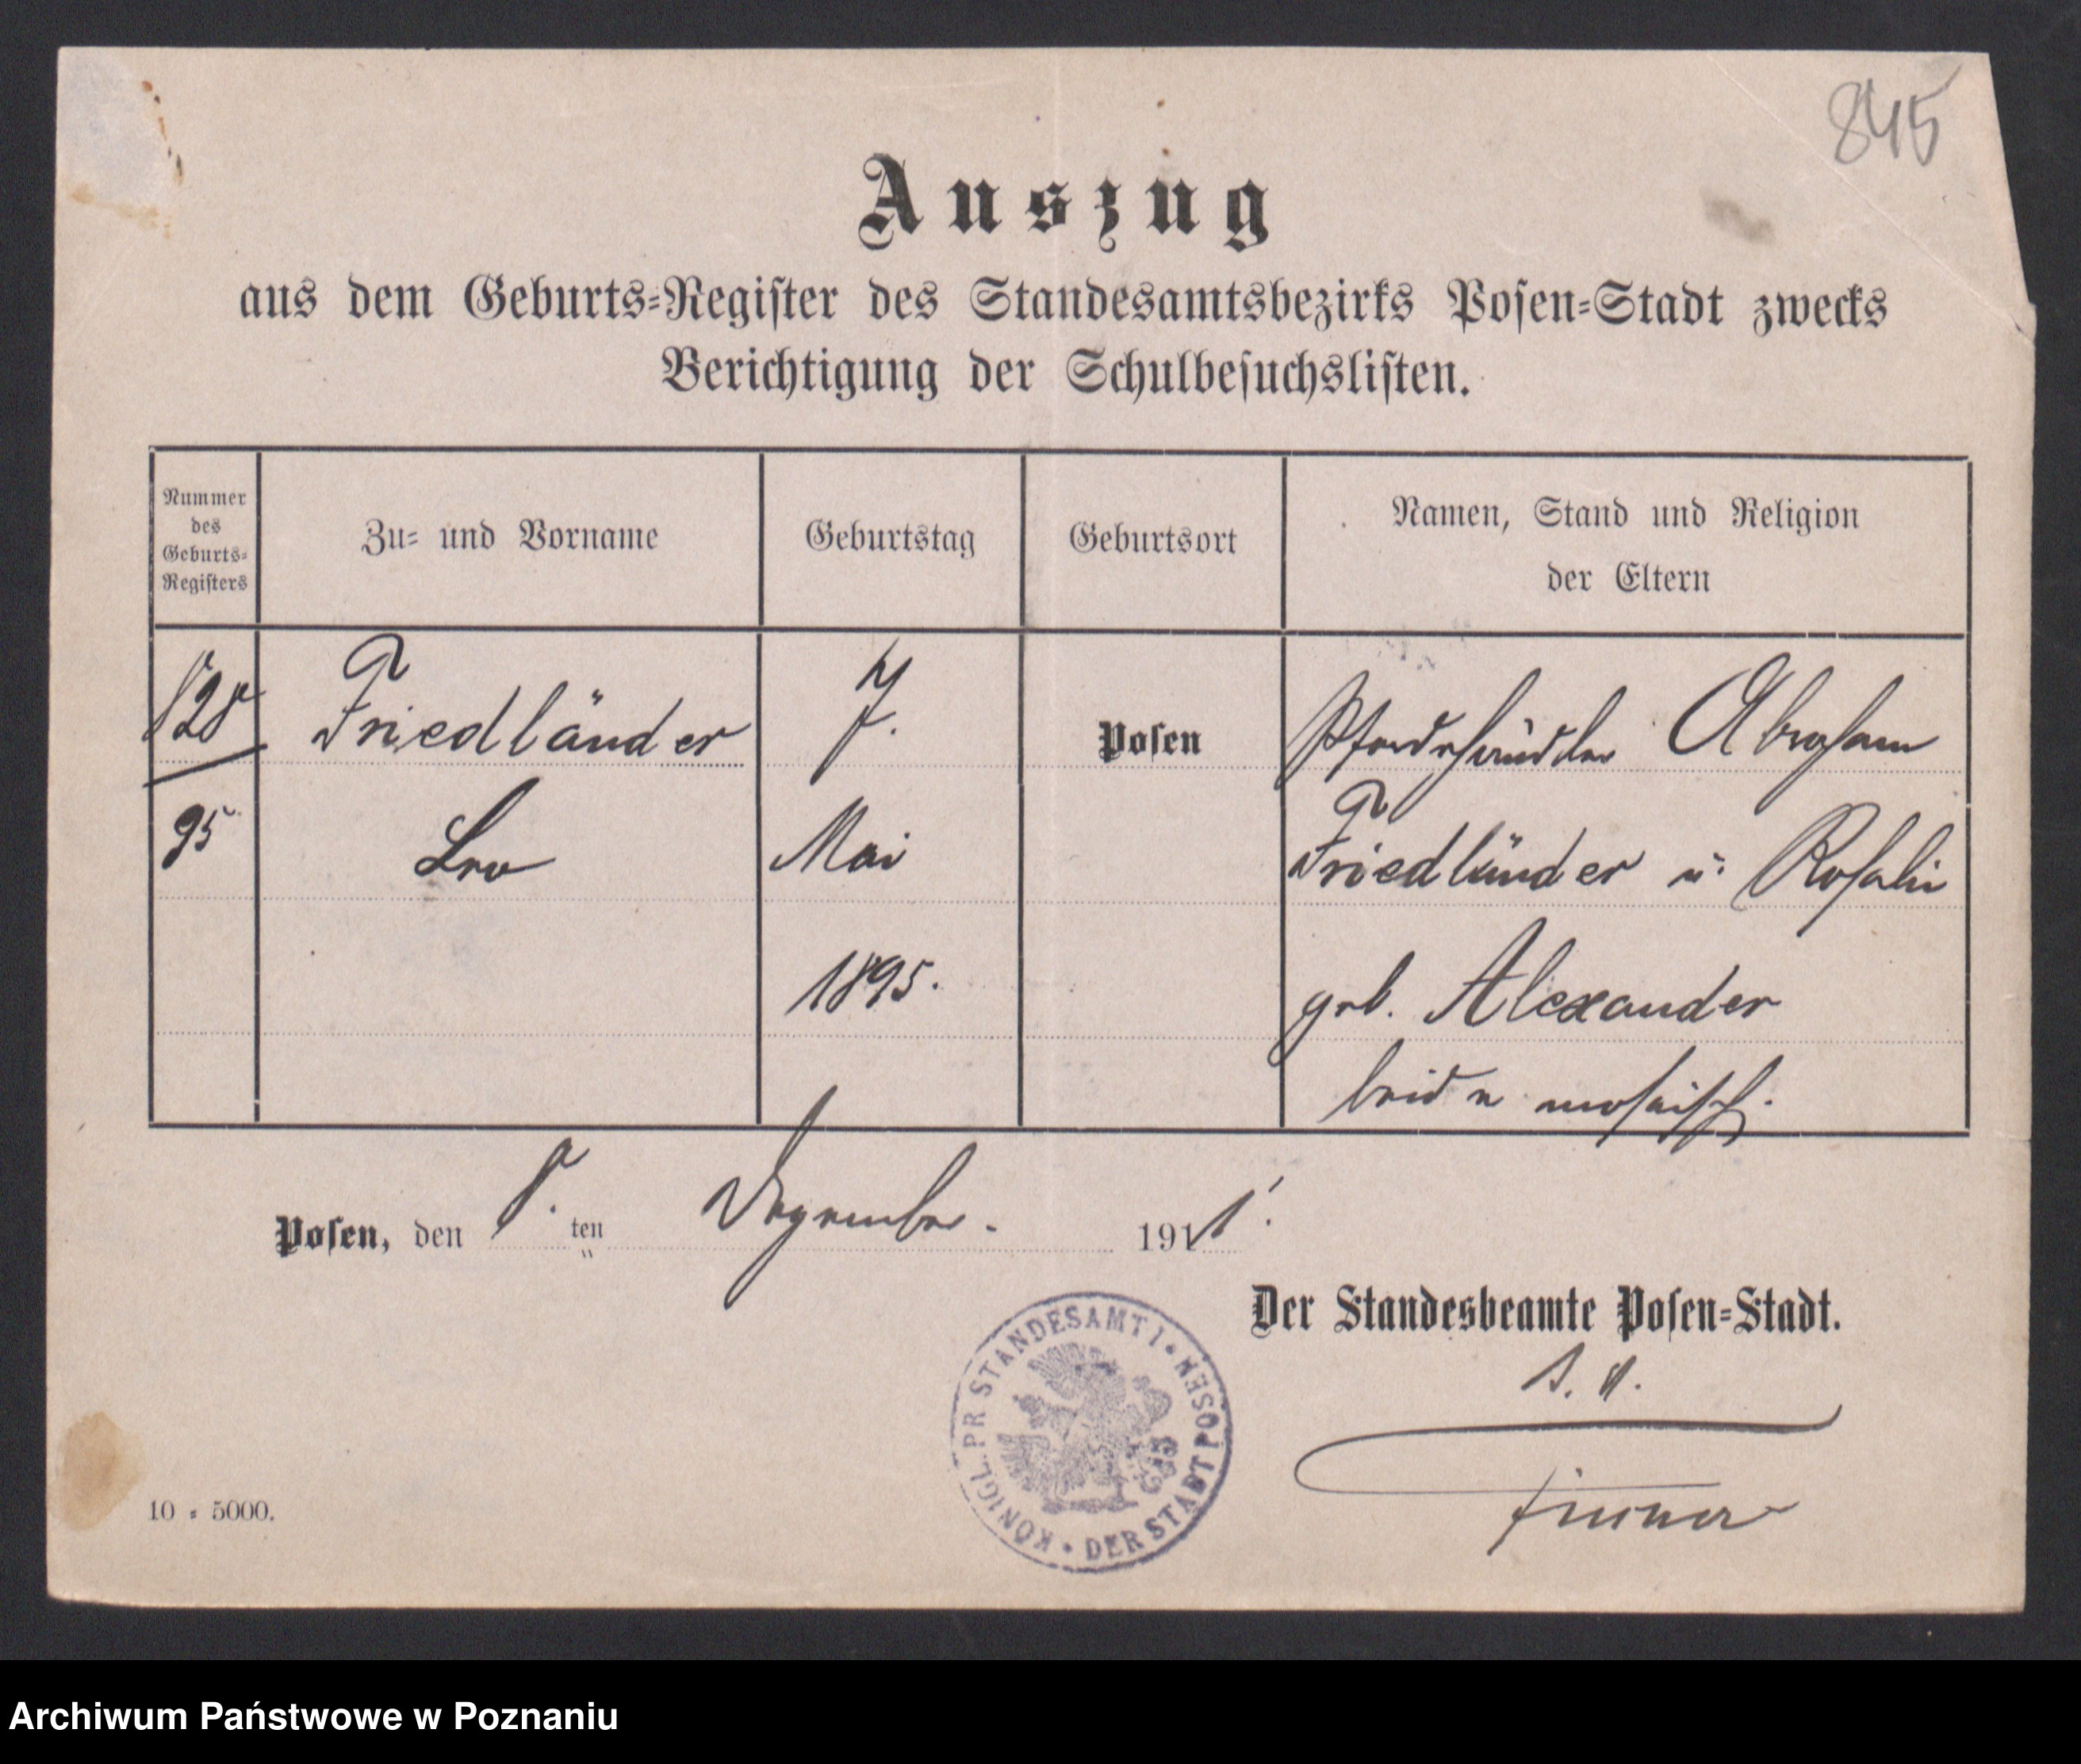 845
Auszug
aus dem Geburts-Register des Standesamtsbezirks Posen-Stadt zwecks
Berichtigung der Schulbesuchslisten.
Nummer des Geburts-Registers
Zu- und Vorname
Geburtstag
Geburtsort
Namen, Stand und Religion der Eltern
828 Friedländer 7. Posen Pferdehändler Abraham
95 Leo Mai Friedländer u. Rosalie
1895. geb. Alexander
beide mosaisch.
Posen, den 8. ten Dezember. 1911.
Der Standesbeamte Posen-Stadt.
KÖNIGL. PR STANDESAMT I • DER STADT POSEN •
10 : 5000.
Archiwum Państwowe w Poznaniu